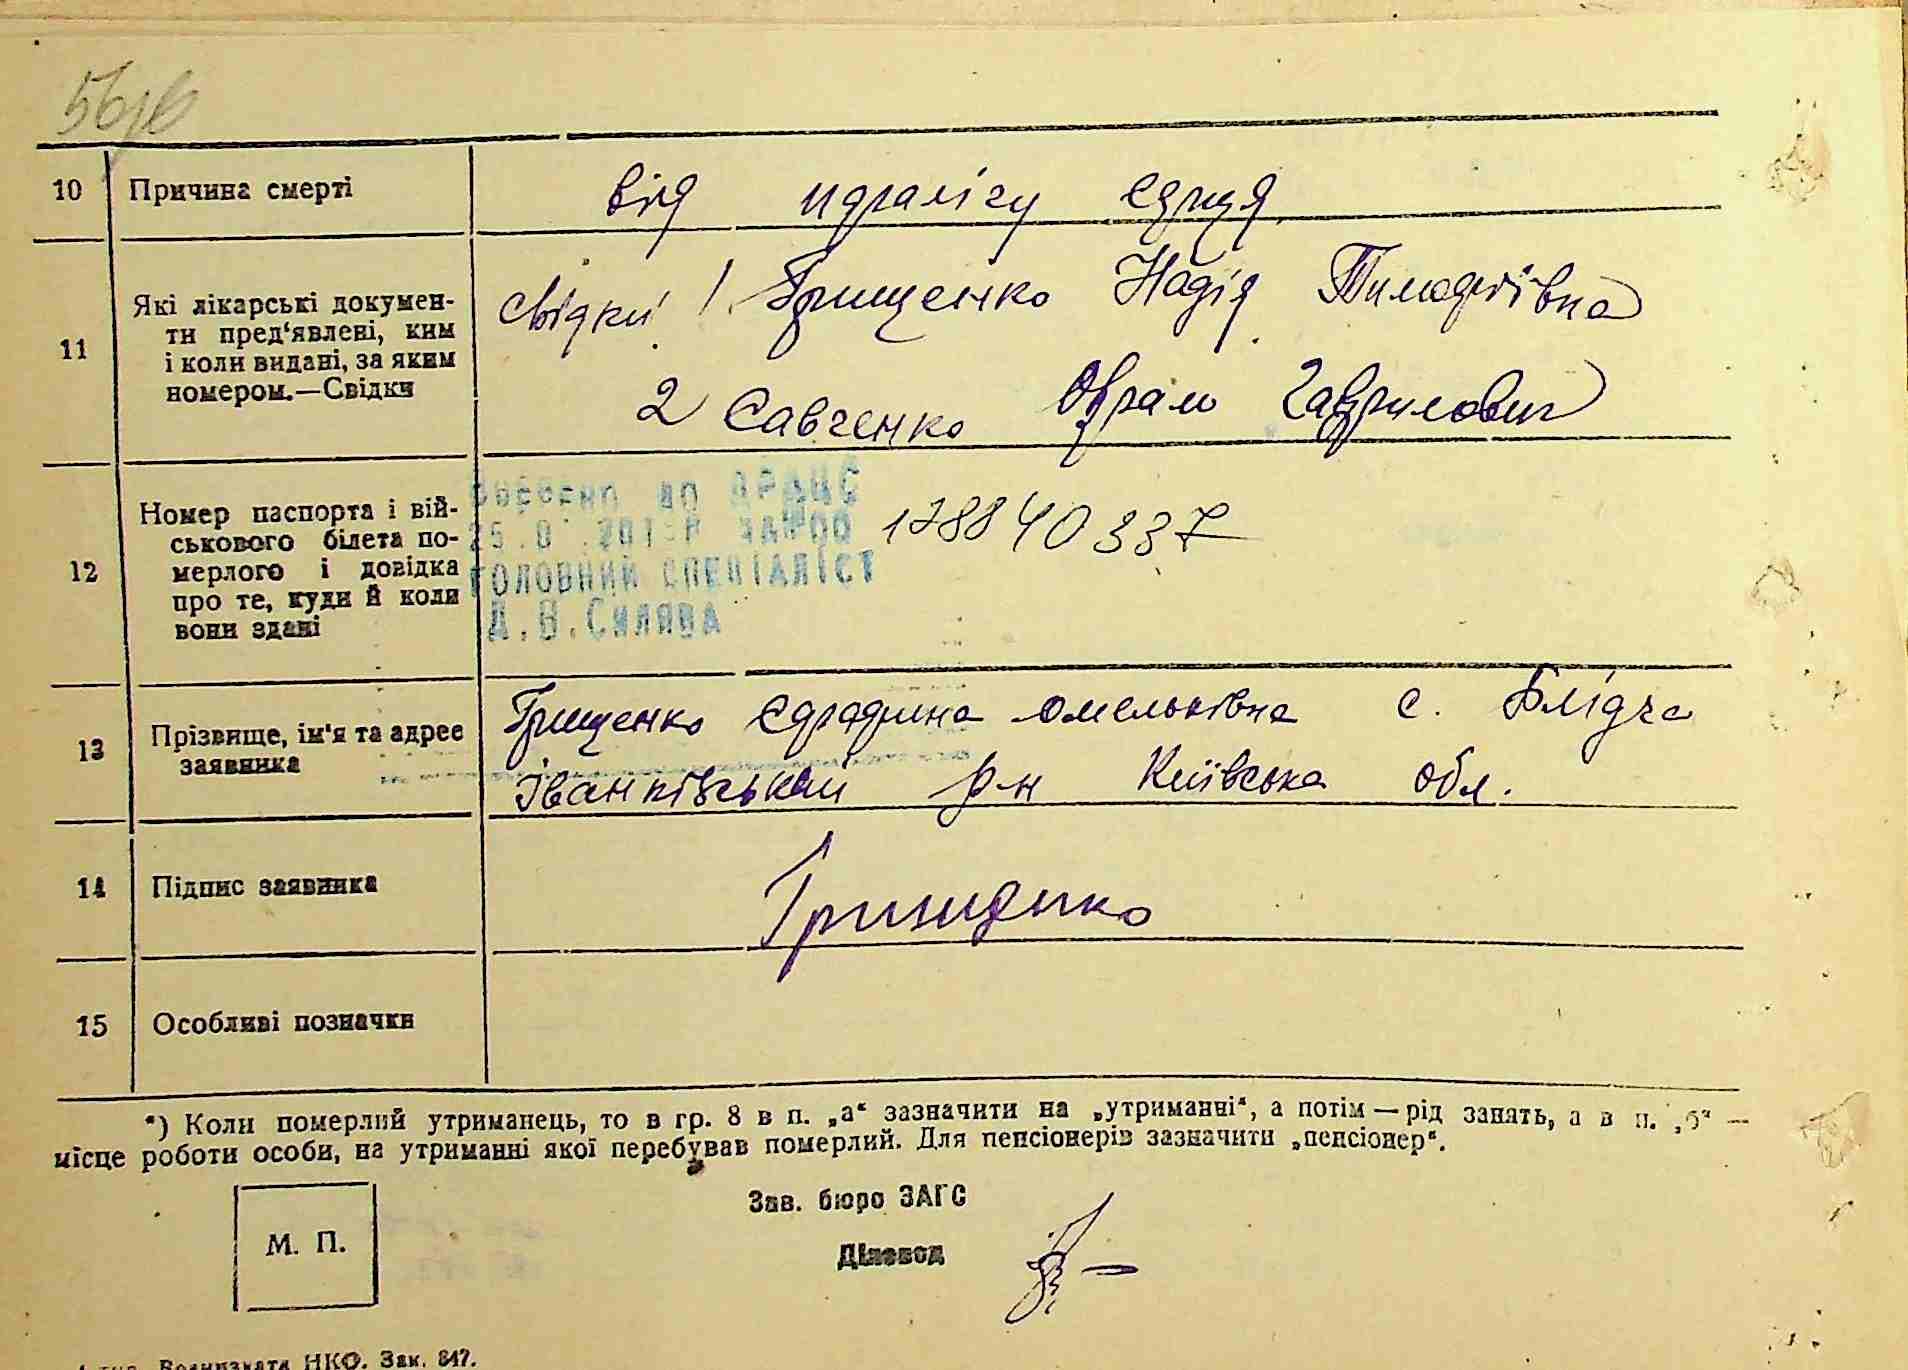 10 Причина смерті від паралічу серця
11 Які лікарські докумен-
ти пред'явлені, ким
і коли видані, за яким
номером.—Свідки
свідки 1. Грищенко Надія Тимофеївна
2 Савченко Оврам Гаврилович
12 Номер паспорта і вій-
ськового білета по-
мерлого і довідка
про те, куди й коли
вони здані
до ДРАЦС
ГОЛОВНИЙ СПЕЦІАЛІСТ
17884033 7
13 Прізвище, ім'я та адрес
заявника
Грищенко Єфрофина Омельківна с. Блідча
Іванківський р-н Київська обл.
14 Підпис заявника Грищенко
15 Особливі позначки
*) Коли померлий утриманець, то в гр. 8 в п. „а“ зазначити на „утриманні“, а потім — рід занять, а в п. „б“ —
місце роботи особи, на утриманні якої перебував померлий. Для пенсіонерів зазначити „пенсіонер“.
М. П.
Зав. бюро ЗАГС
Діловод
НКО. Зак. 847.